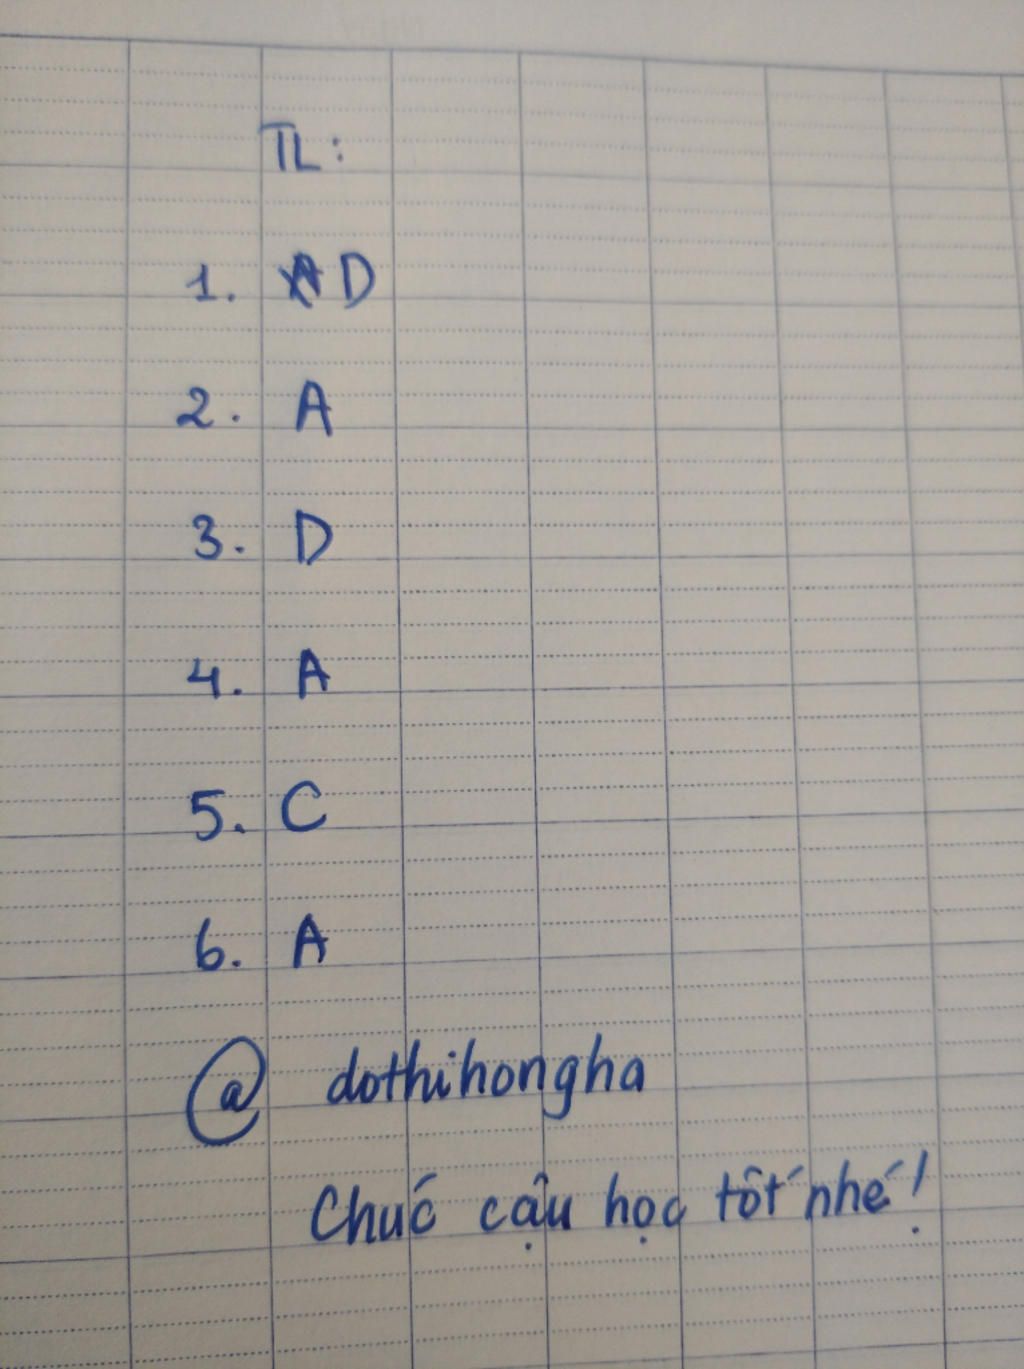 TL:
1. D
2. A
3. D
4. A
5. C
6. A
@ dothihongha
Chúc cậu học tốt nhé!